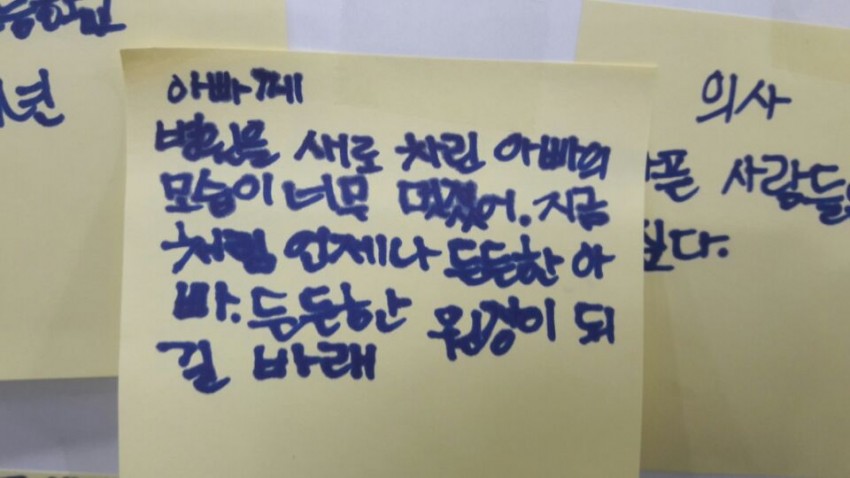 아빠께
병원을 새로 차린 아빠의
모습이 너무 멋졌어. 지금
처럼 언제나 든든한 아
빠. 듬든한 원장이 되
길 바래
의사
픈 사람들
싶다.
년